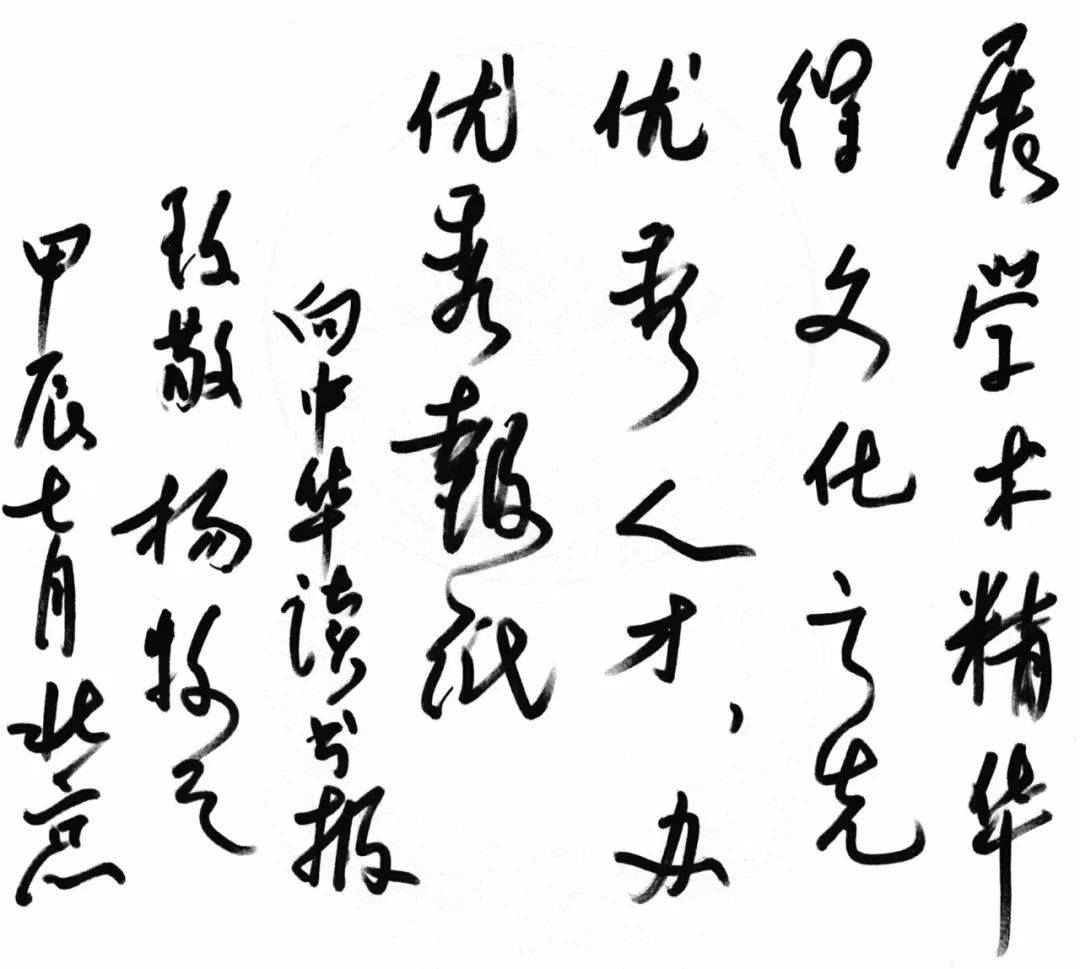 展学术精华
得文化之先
优秀人才，办
优秀报纸
向中华读书报
致敬 杨牧之
甲辰七月北京